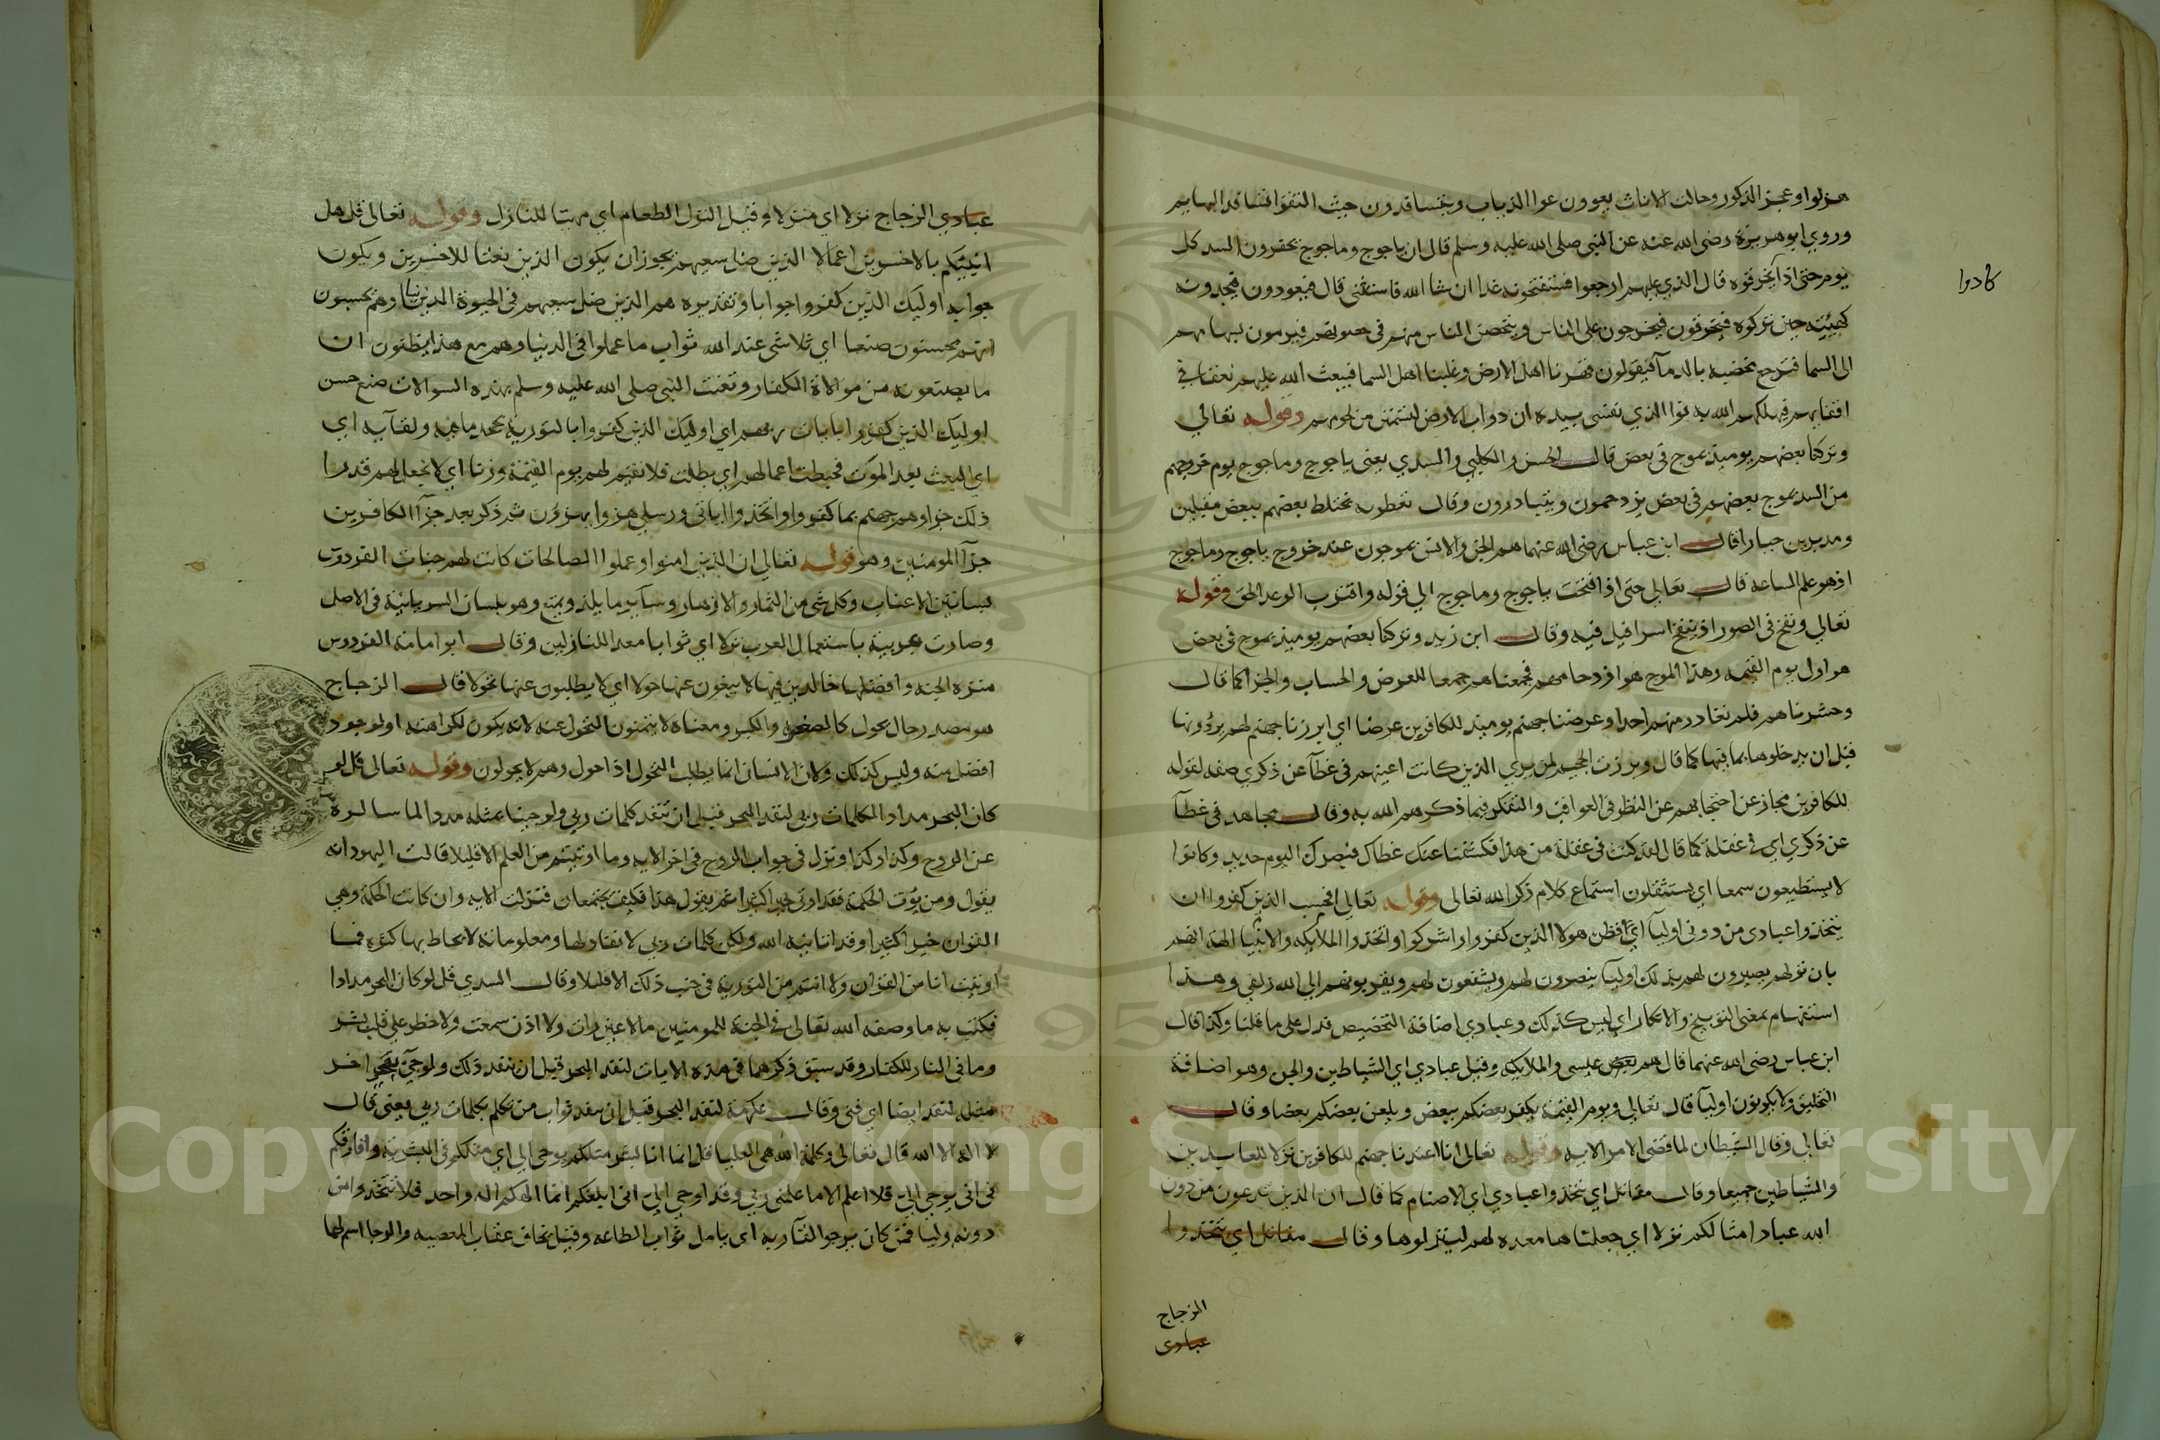 هزلوا وعجز الذكور وحالت الاناث يعوون عوا الذياب ويتسافدون حيث التقوا تسافد البهايم
وروي ابو هريرة رضي الله عنه عن النبي صلى الله عليه وسلم قال ان ياجوج وماجوج يحفرون السد كل
يوم حتى اذا يخرقوه قال الذي عليهم ارجعوا فستفتحونه غدا ان شا الله فاستثنى قال فيعودون فيجدونه
كادوا
كهيئته حين تركوه فيخرقون فيخرجون على الناس ويتحصن الناس منهم في حصونهم فيرمون بسهامهم
الى السما فترجع مخضبة بالدما فيقولون قهرنا اهل الارض وغلبنا اهل السما فيبعث الله عليهم نغفا في
اقفايهم فيهلكهم الله به فوا الذي نفسي بيده ان دواب الارض لتسمن من لحومهم وقوله تعالى
وتركنا بعضهم يوميذ يموج في بعض قال الحسن والكلبي والسدي يعني ياجوج وماجوج يوم خروجهم
من السد يموج بعضهم في بعض يزدحمون ويتبادرون وقال يختلط بعضهم ببعض مقبلين
ومدبرين حيارا قال ابن عباس رضي الله عنهما هم الجن والانس يموجون عند خروج ياجوج وماجوج
اذ هو علم الساعة قال تعالى حتى اذا فتحت ياجوج وماجوج الى قوله واقترب الوعد الحق وقوله
تعالى ونفخ في الصور اذ ينفخ اسرافيل فيه وقال ابن زيد وتركنا بعضهم يوميذ يموج في بعض
هو اول يوم القيمة وهذا الموج هو ازدحامهم فجمعناهم جمعا للعرض والحساب والجزا كما قال
وحشرناهم فلم نغادر منهم احدا وعرضنا جهنم يوميذ للكافرين عرضا اي ابرزنا جهنم لهم يرونها
قبل ان يدخلوها بما فيها كما قال وبرزت الجحيم لمن يرى الذين كانت اعينهم في غطآ عن ذكري صفه لقوله
للكافرين مجاز عن احتجابهم عن النظر في العواقب والتفكر فيما ذكرهم الله به وقال مجاهد في غطآ
عن ذكري اي في غفلة كما قال لقد كنت في غفلة من هذا فكشفنا عنك غطاك فبصرك اليوم حديد وكانوا
لا يستطيعون سمعا اي يستثقلون استماع كلام ذكر الله تعالى وقوله تعالى افحسب الذين كفروا ان
يتخذوا عبادي من دوني اوليآ اي افظن هولا الذين كفروا واشركوا واتخذوا الملايكه والانبيا الهة انهم
بان تولهم يصيرون لهم بذلك اوليآ ينصرون لهم ويشفعون لهم ويقربونهم الى الله زلفى وهذا
استفهام بمعنى التوبيخ والانكار اي ليس كذلك وعبادي اضافة التخصيص فدل على ما قلنا وكذا قال
ابن عباس رضي الله عنهما قال هم بعض عيسى والملايكه وقيل عبادي اي الشياطين والجن وهو اضافة
التخليق ولا يكونون اوليآ قال تعالى ويوم القيمة يكفر بعضكم ببعض ويلعن بعضكم بعضا وقال
تعالى وقال الشيطان لما قضي الامر الايه وقوله تعالى انا اعتدنا جهنم للكافرين نزلا للعابدين
والشياطين جميعا وقال مقاتل اي يتخذوا عبادي اي الاصنام كما قال ان الذين تدعون من دون
الله عباد امثالكم نزلا اي جعلناها معده لهم لينزلوها وقال مقاتل اي يتخذوا
الزجاج
عبادي
عبادي الزجاج نزلا اي منزلا وقيل النزل الطعام اي مهيا للنازل وقوله تعالى قل هل
انبيكم بالاخسرين اعمالا الذين ضل سعيهم يجوز ان يكون الذين نعتا للاخسرين ويكون
جوابه اوليك الذين كفروا جوابا وتقديره هم الذين ضل سعيهم في الحيوة الدنيا وهم يحسبون
انهم يحسنون صنعا اي تلاشى عند الله ثواب ما عملوا في الدنيا وهم مع هذا يظنون ان
ما يصنعونه من موالاة الكفار وتعنت النبي صلى الله عليه وسلم بهذه السوالات صنع حسن
اوليك الذين كفروا بايات ربهم اي اوليك الذين كفروا بالتورية بجحد ما فيه ولقآيه اي
اي البعث بعد الموت فحبطت اعمالهم اي بطلت فلا نقيم لهم يوم القيمة وزنا اي لا نجعل لهم قدرا
ذلك جزاوهم جهنم بما كفروا واتخذوا اياتي ورسلي هزوا يهزؤن ثم ذكر بعد جزآ الكافرين
جزآ المومنين وهو قوله تعالى ان الذين امنوا وعملوا الصالحات كانت لهم جنات الفردوس
بساتين الاعناب وكل شي من الثمار والازهار وساير ما يلذ ويمتع وهو بلسان السريانية في الاصل
وصارت عربية باستعمال العرب نزلا اي ثوابا معدا للنازلين وقال ابو امامة الفردوس
منتزه الجنه وافضلها خالدين فيها لا يبغون عنها حولا اي لا يطلبون عنها تحولا قال الزجاج
هو مصدر حال يحول كالصغر والكبر ومعناه لا يتمنون التحول عنه لانه يكون لكراهته او لوجود
افضل منه وليس كذلك ولان الانسان انما يطلب التحول اذا حول وهم لا يحولون وقوله تعالى قل لو
كان البحر مدادا لكلمات ربي لنفد البحر قبل ان تنفد كلمات ربي ولو جينا بمثله مددا لما سالوه
عن الروح وكذا وكذا ونزل في جواب الروح في اخر الايه وما اوتيتم من العلم الا قليلا قالت اليهود انه
يقول ومن يؤت الحكمة فقد اوتي خيرا كثيرا ثم يقول هذا فكيف يجتمعان فنزلت الايه وان كانت الحكمة وهي
القران خيرا كثيرا وقد اتانيه الله ولكن كلمات ربي لا نفاد لها ومعلوماته لا يحاط بها كثره فما
اوتيت انا من القران ولا انتم من التورية في جنب ذلك الا قليلا وقال السدي قل لو كان البحر مدادا
فكتب به ما وصفه الله تعالى في الجنة للمومنين ما لا عين رات ولا اذن سمعت ولا خطر على قلب بشر
وما في النار للكفار وقد سبق ذكرهما في هذه الايات لنفد البحر قبل ان تنفد ذلك ولو جيئ ببحر اخر
مثله لنفد ايضا اي فني وقال عكرمة لنفد البحر قبل ان ينفد ثواب من تكلم بكلمات ربي يعني قال
لا اله الا الله قال تعالى وكلمة الله هي العليا قل انما انا بشر مثلكم يوحى الي اي مثلكم في البشريه وافارقكم
في اني يوحى الي فلا اعلم الا ما علمني ربي وقد اوحي الي اني ابلغكم انما الهكم اله واحد فلا تتخذوا من
دونه وليا فمن كان يرجوا لقآ ربه اي يامل ثواب الطاعه وقيل يخاف عقاب المعصيه والرجا اسم لهما
Copyright © King Saud University
1957